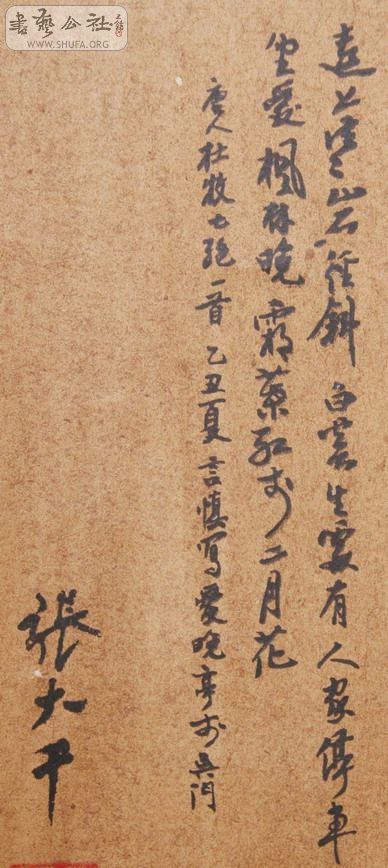 書藝公社
WWW.SHUFA.ORG
遠上寒山石徑斜 白雲生處有人家 停車
坐愛楓林晚 霜葉紅於二月花
唐人杜牧七絕一首 乙丑夏 言慎寫愛晚亭於吳門
張大千